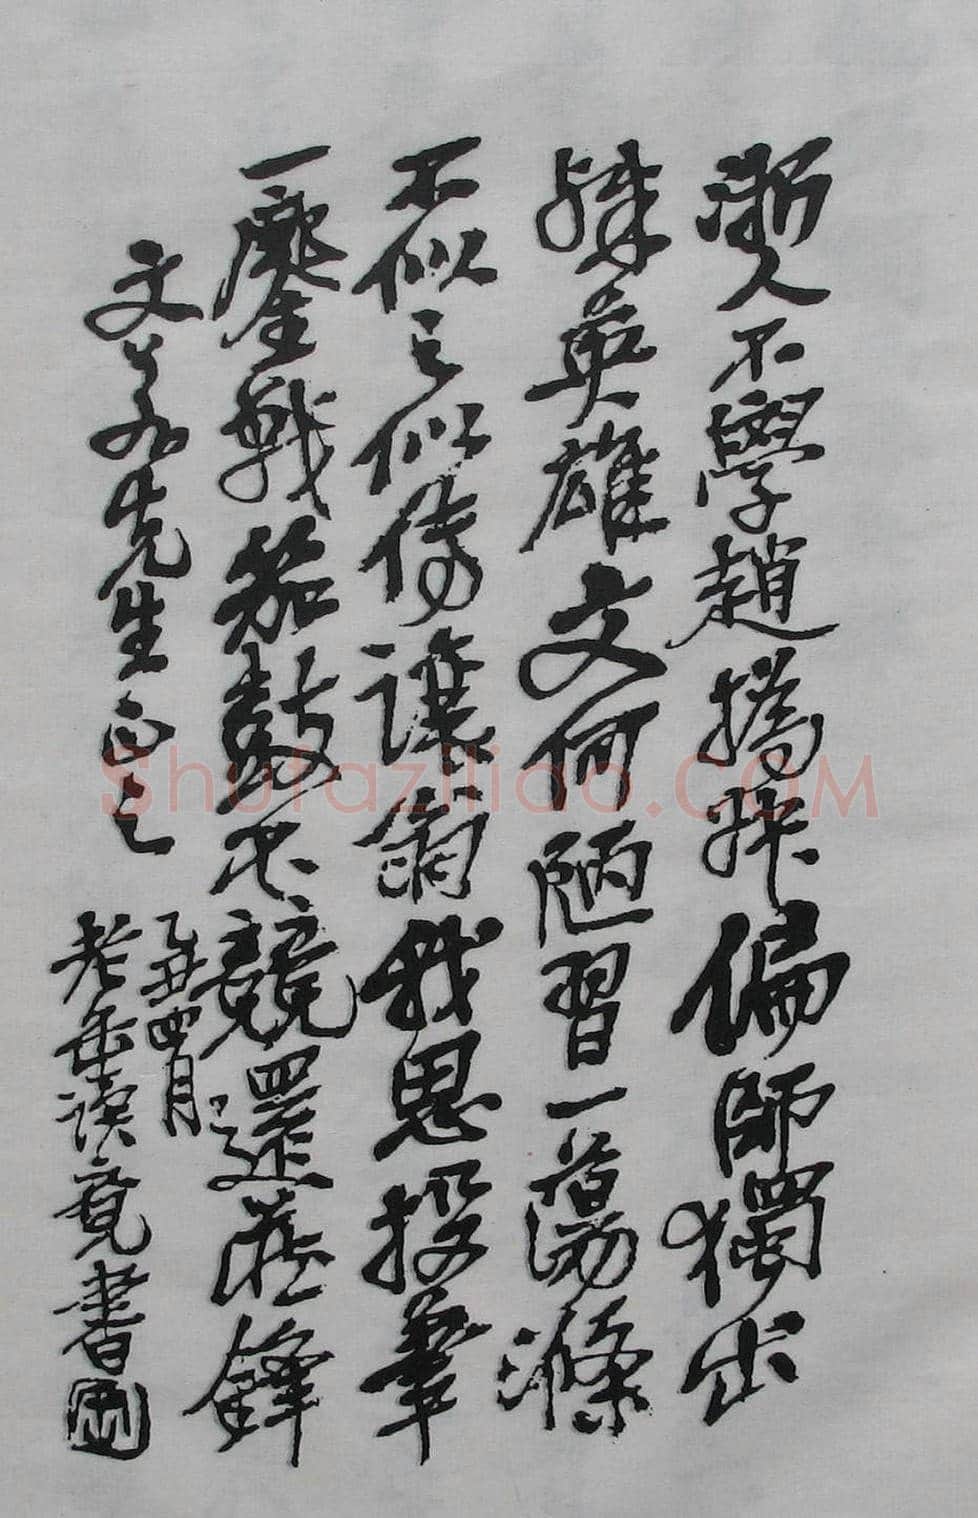 浙人不學趙撝叔偏師獨出
殊英雄文何陋習一蕩滌
不似之似傳讓翁我思投筆
一鏖戰笳鼓不競還藏鋒
文先生正之
乙丑四月
老缶讀竟書
Shufaziliao.COM